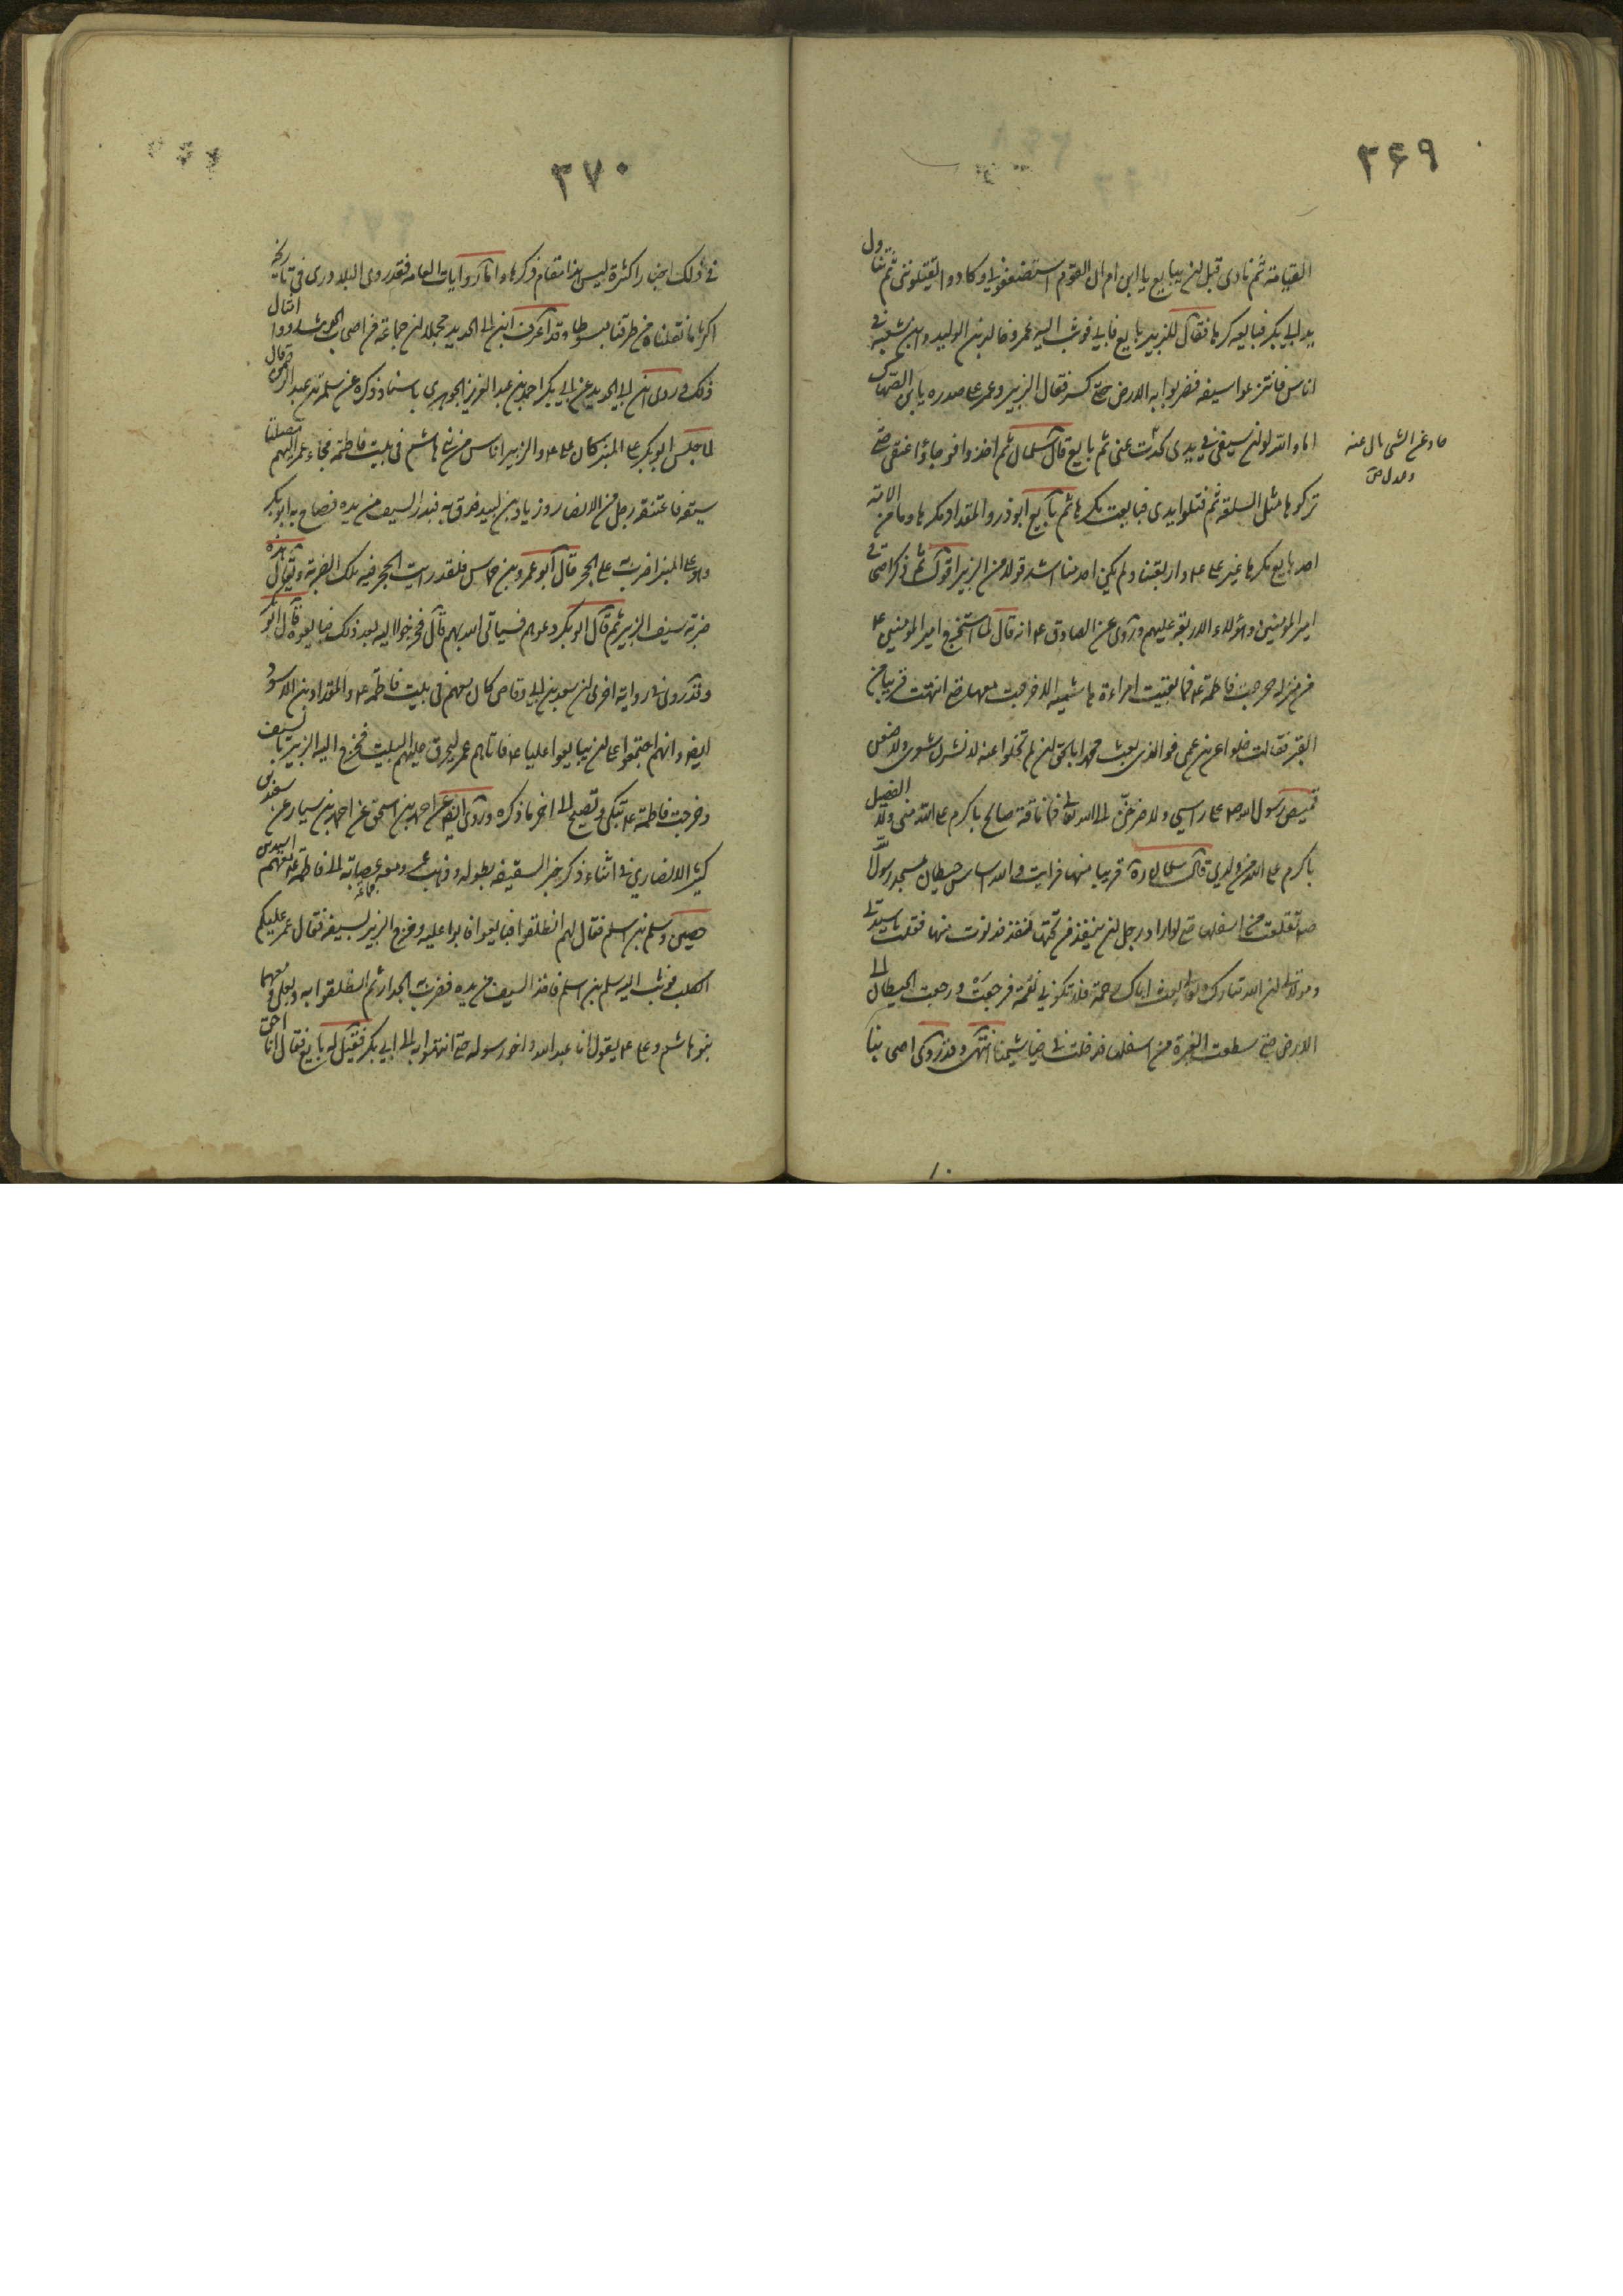 ۳۶۹
القيامة ثم نادى قبل ان يبايع يا ابن ام ان القوم استضعفوني وكادوا يقتلونني ثم تناول
يد ابي بكر فبايعه كرها فقال للزبير بايع فابى فوثب اليه عمر وخالد بن الوليد وابن شعبة في
اناس فانتزعوا سيفه فضربوا به الارض حتى كسر فقال الزبير وعمر على صدره يا بن الصهاك
اما والله لو ان سيفي في يدي لحدت عني ثم بايع قال سلمان ثم اخذوا فوجاؤا عنقي حتى
حاد عن الشيء مال عنه
وعدل ص
تركوها مثل السلعة ثم فتلوا يدي فبايعت مكرها ثم بايع ابوذر والمقداد مكرها وما من الامة
احد بايع مكرها غير علي ع واربعتنا ولم يكن احد منا اشد قولا من الزبير اقول ثم ذكر احتجاج
امير المؤمنين وهؤلاء الاربعة عليهم وروى عن الصادق ع انه قال لما استخرج امير المؤمنين ع
من منزله خرجت فاطمة ع فما بقيت امراءة هاشمية الا خرجت معها حتى انتهت قريبا من
القبر فقالت خلوا عن ابن عمي فوالذي بعث محمدا بالحق لئن لم تخلوا عنه لانشرن شعري ولاضعن
قميص رسول الله ص على راسي ولاصرخن الى الله تعالى فما ناقة صالح باكرم على الله مني ولا الفصيل
باكرم على الله من ولدي قال سلمان ره قريبا منها فرايت والله اساس حيطان مسجد رسول الله
ص تقلعت من اسفلها حتى لو اراد رجل ان ينفذ من تحتها لنفذ فدنوت منها فقلت يا سيدتي
ومولاتي ان الله تبارك وتعالى بعث اباك رحمة فلا تكوني نقمة فرجعت ورجعت الحيطان الى
الارض حتى سطعت الغبرة من اسفلها فدخلت في خياشيمنا انتهى وقد روى اصحابنا
۳۷۰
في ذلك اخبارا كثيرة ليس هذا مقام ذكرها واما روايات العامة فقد روى البلاذري في تاريخه
اكثر ما نقلناه من طرقنا مبسوطا وقد اعترف ابن ابي الحديد مجملا ان جماعة من اصحاب الحديث رووا امثال
ذلك وروى ابن ابي الحديد عن ابي بكر احمد بن عبد العزيز الجوهري باسناد ذكره عن سلمة بن عبد الرحمن قال
لما جلس ابو بكر على المنبر كان علي ع والزبير اناس من بني هاشم في بيت فاطمة فجاء عمر اليهم مصلتا
سيفه فاعتنقه رجل من الانصار وزياد بن لبيد فدق به فبدر السيف من يده فصاح به ابو بكر
وهو على المنبر اضرب على الحجر قال ابو عمرو بن حماس فلقد رايت الحجر فيه تلك الضربة ويقال هذه
ضربة سيف الزبير ثم قال ابو بكر دعوهم فسياتي الله بهم قال فخرجوا اليه بعد ذلك فبايعوه قال ابو بكر
وقد روى في رواية اخرى ان سعد بن ابي وقاص كان معهم في بيت فاطمة ع والمقداد بن الاسود
ايضا وانهم اجتمعوا على ان يبايعوا عليا ع فاتاهم عمر ليحرق عليهم البيت فخرج اليه الزبير بالسيف
وخرجت فاطمة ع تبكي وتصيح الى اخر ما ذكره وروى ايضا عن احمد بن اسحق عن احمد بن سيار عن سعيد بن
كثير الانصاري في اثناء ذكر خبر السقيفة بطوله وذهب عمر ومعه عصابة الى فاطمة ع منهم اسيد بن
جماعة
حصين وسلم بن اسلم فقال لهم انطلقوا فبايعوا فابوا عليه وخرج الزبير بسيفه فقال عمر عليكم
الكلب فوثب اليه سلم بن اسلم فاخذ السيف من يده فضرب به الجدار ثم انطلقوا به وبعلي ومعهما
بنو هاشم وعلي ع يقول انا عبد الله واخو رسوله حتى انتهوا به الى ابي بكر فقيل له بايع فقال انا احق